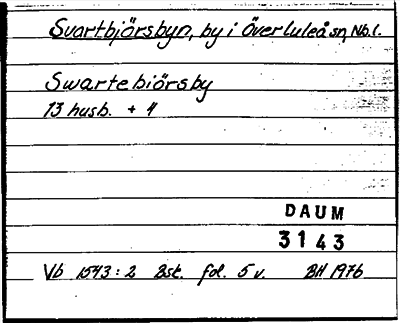 Svartbjörsbyn, by i Överluleå sn, Nb.l.
Swartebiörsby
13 husb. + 4
DAUM
3143
Vb 1543:2 Bst. fol. 5 v. BH 1976